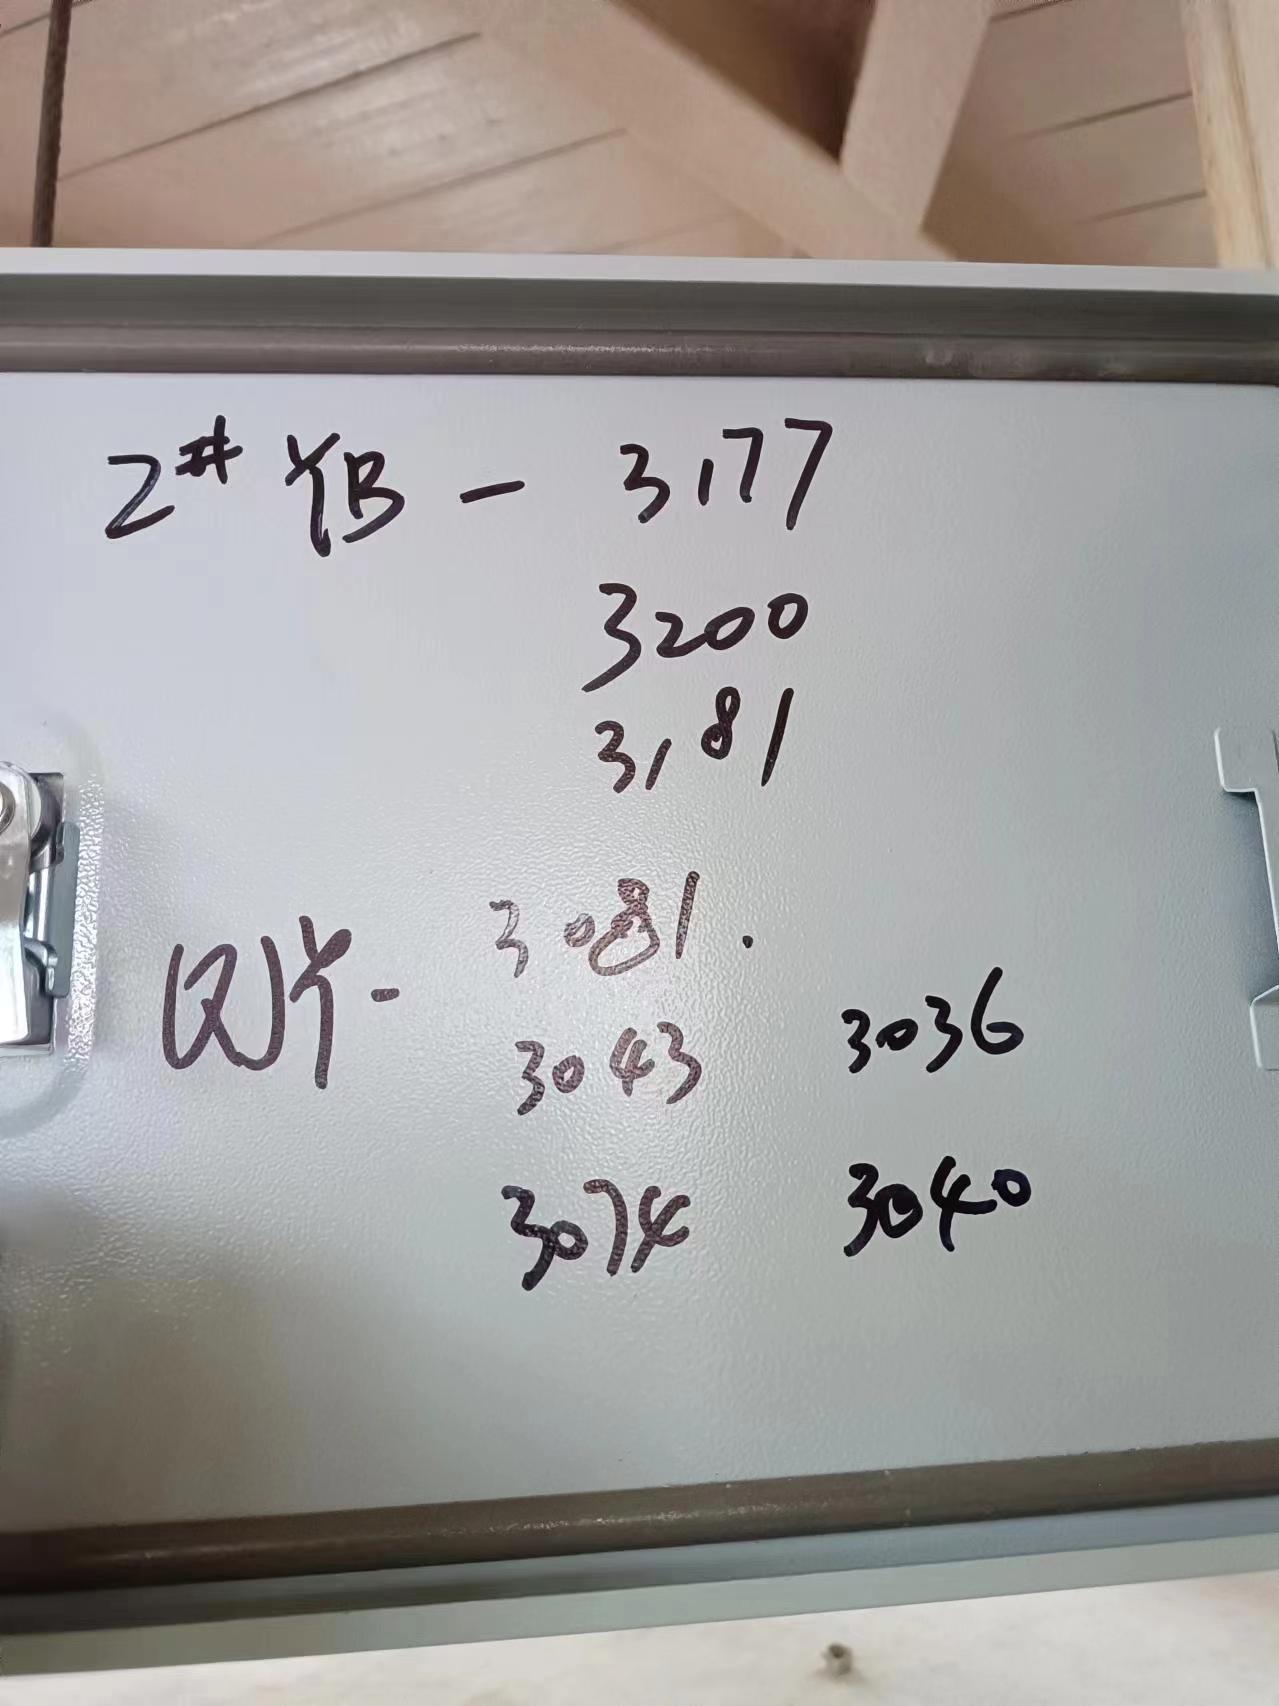 2# YB - 3177
3200
3181
QJY - 3081.
3043 3036
3074 3040